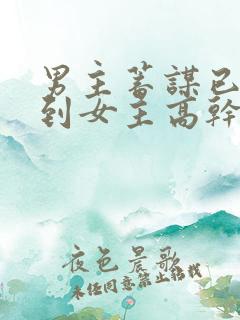 男主蓄謀已
到女主高幹
夜色晨歌
未經同意禁止搭載